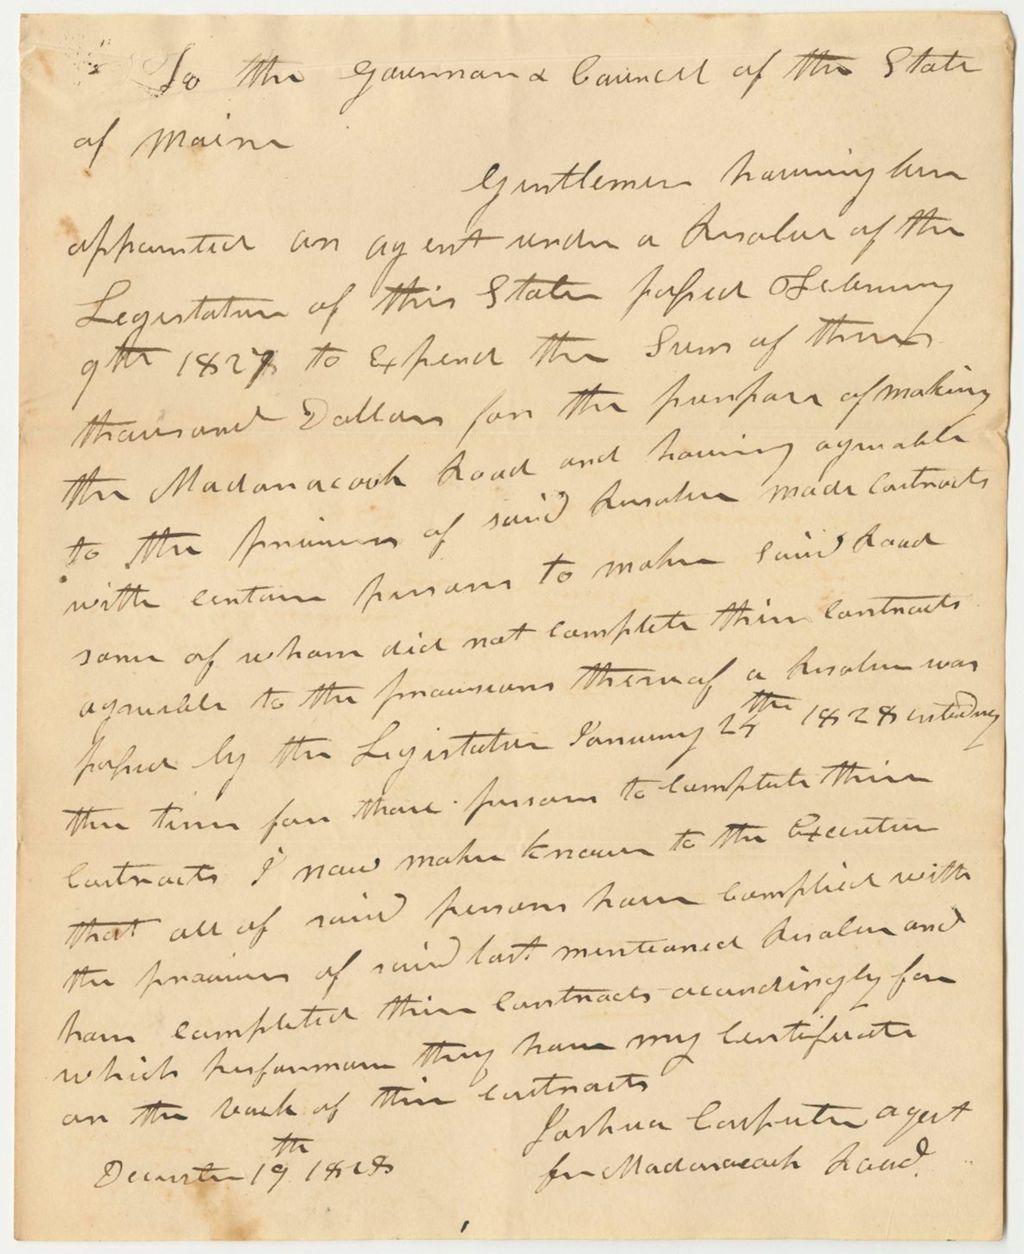 To the Governor & Council of the State
of Maine
Gentlemen having been
appointed an agent under a Resolve of the
Legislature of this State passed February
9th 1827 to Expend the Sum of three
thousand Dollars for the purpose of making
the Madanacook Road and having agreeable
to the provisions of said Resolve made Contracts
with certain persons to make said Road
some of whom did not complete their Contracts
agreeable to the provisions thereof a Resolve was
passed by the Legislature January 24th 1828 extending
the time for those persons to Complete their
Contracts I now make known to the Executive
that all of said persons have Complied with
the provisions of said last mentioned Resolve and
have completed their Contracts accordingly for
which performance they have my Certificate
on the back of their contracts
Joshua Carpenter agent
for Madanacook Road.
December 19th 1828